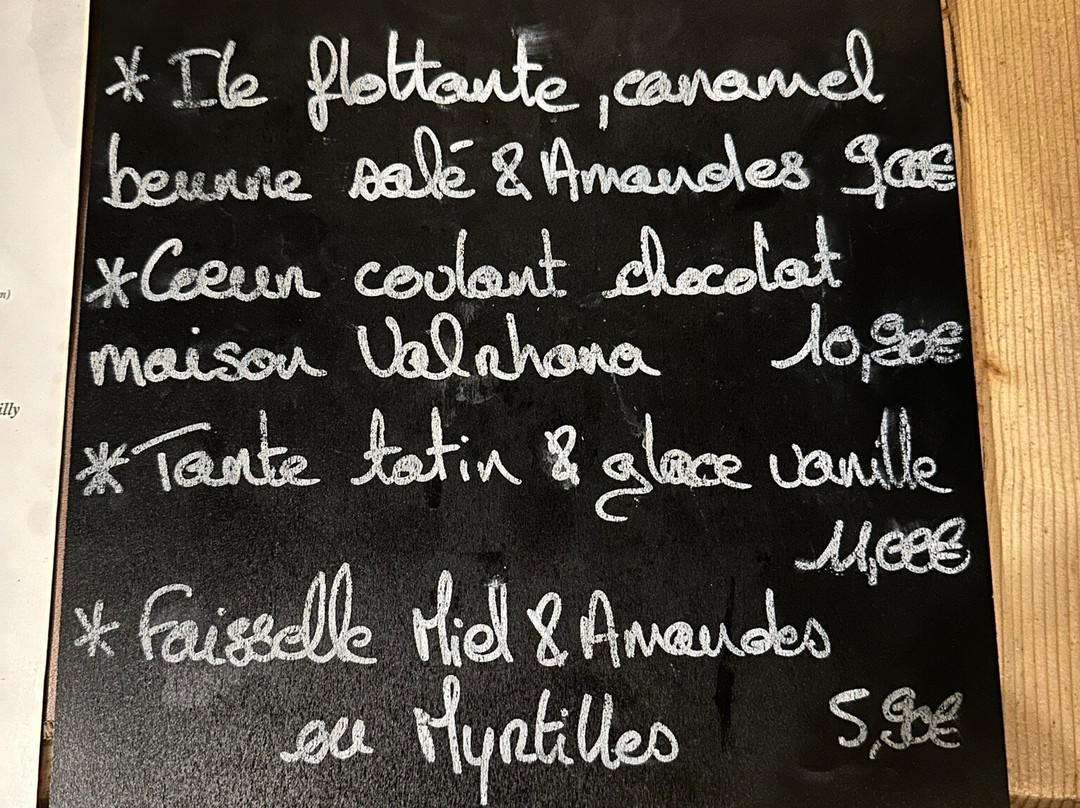 * Ile flottante, caramel
beurre salé & Amandes 9,00€
* Coeur coulant chocolat
maison Valrhona 10,90€
* Tarte tatin & glace vanille
11,00€
* Faisselle Miel & Amandes
ou Myrtilles 5,90€
n)
illy